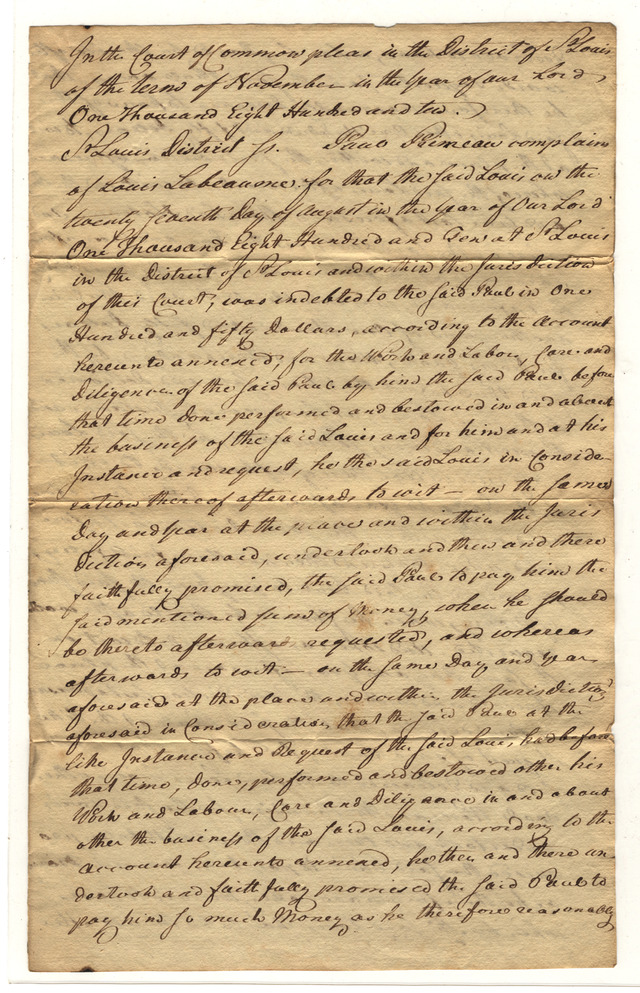 In the Court of Common pleas in the District of St Louis
of the term of November in the Year of our Lord,
One Thousand Eight Hundred and ten.
St Louis District Ss. Paul Primeau complains
of Louis Labeaume. for that the said Louis on the
twenty seventh Day of August in the Year of Our Lord
One Thousand Eight Hundred and Ten at St Louis
in the District of St Louis and within the Jurisdiction
of this Court, was indebted to the said Paul in One
Hundred and fifty Dollars, according to the account
hereunto annexed, for the Work and Labour, Care and
Diligence of the said Paul by him the said Paul before
that time done performed and bestowed in and about
the business of the said Louis and for him and at his
Instance and request, he the said Louis in Conside-
ration thereof afterwards to wit — on the same
Day and Year at the place and within the Juris
diction aforesaid, undertook and then and there
faithfully promised, the said Paul to pay him the
said mentioned sum of Money, when he should
be thereto afterwards requested, and whereas
afterwards to wit — on the same Day and Year
aforesaid at the place and within the Jurisdiction
aforesaid in Consideration that the said Paul at the
like Instance and Request of the said Louis, had before
that time, done, performed and bestowed other his
Work and Labour, Care and Diligence in and about
other the business of the said Louis, according to the
account hereunto annexed, he then and there un-
dertook and faithfully promised the said Paul to
pay him so much Money as he therefore reasonably